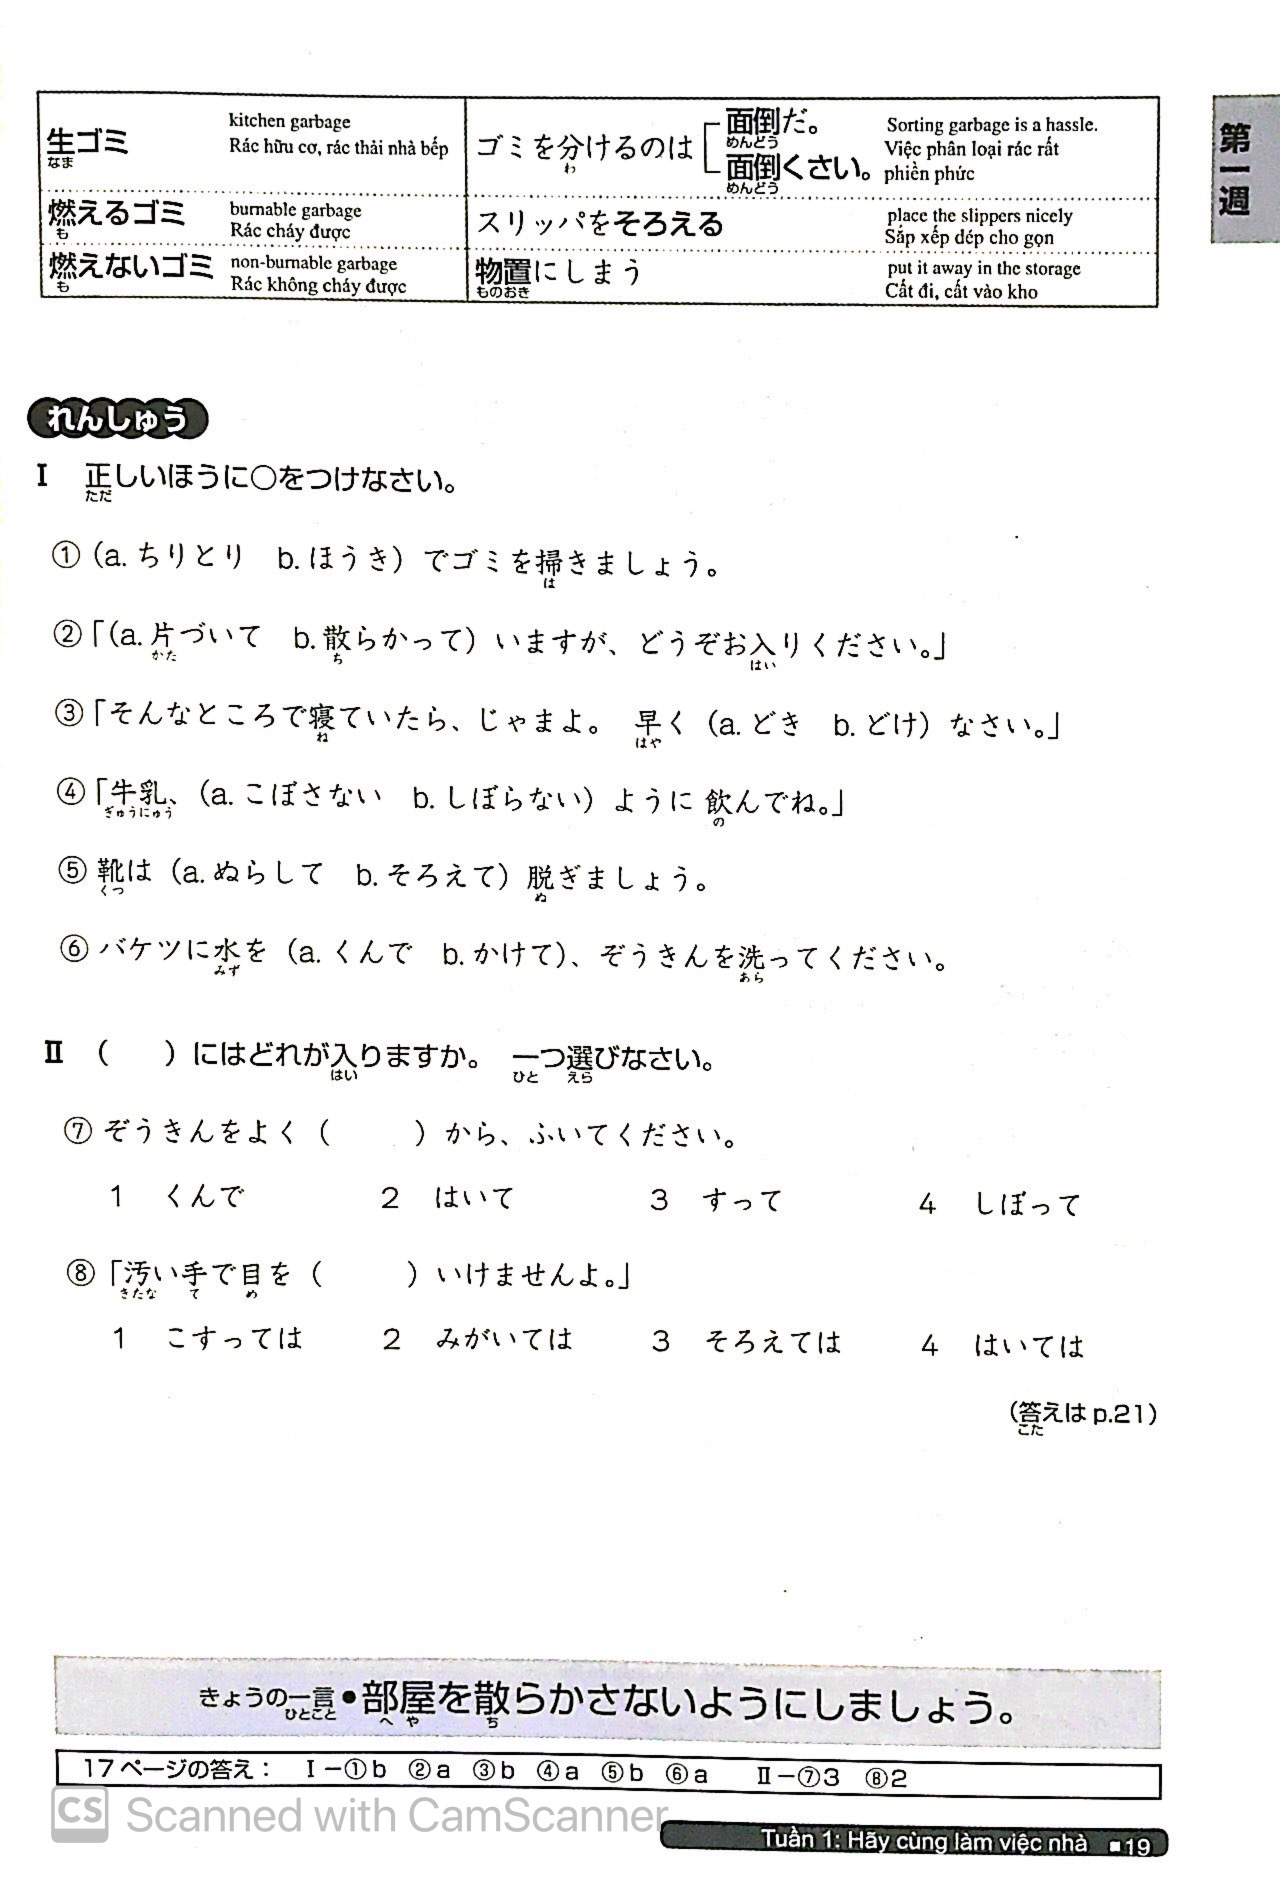 生ゴミ
なま
kitchen garbage
Rác hữu cơ, rác thải nhà bếp
燃えるゴミ
も
burnable garbage
Rác cháy được
燃えないゴミ
も
non-burnable garbage
Rác không cháy được
ゴミを分けるのは
わ
面倒だ。
めんどう
面倒くさい。
めんどう
Sorting garbage is a hassle.
Việc phân loại rác rất
phiền phức
スリッパをそろえる
place the slippers nicely
Sắp xếp dép cho gọn
物置にしまう
ものおき
put it away in the storage
Cất đi, cất vào kho
第一週
れんしゅう
I 正しいほうに○をつけなさい。
ただ
① (a. ちりとり b. ほうき) でゴミを掃きましょう。
は
②「(a. 片づいて b. 散らかって) いますが、どうぞお入りください。」
かた ち はい
③「そんなところで寝ていたら、じゃまよ。 早く (a. どき b. どけ) なさい。」
ね はや
④「牛乳、(a. こぼさない b. しぼらない) ように 飲んでね。」
ぎゅうにゅう の
⑤ 靴は (a. ぬらして b. そろえて) 脱ぎましょう。
くつ ぬ
⑥ バケツに水を (a. くんで b. かけて)、ぞうきんを洗ってください。
みず あら
II ( ) にはどれが入りますか。 一つ選びなさい。
はい ひと えら
⑦ ぞうきんをよく ( ) から、ふいてください。
1 くんで 2 はいて 3 すって 4 しぼって
⑧「汚い手で目を ( ) いけませんよ。」
きたな て め
1 こすっては 2 みがいては 3 そろえては 4 はいては
(答えは p.21)
こた
きょうの一言●部屋を散らかさないようにしましょう。
ひとこと へや ち
17ページの答え： I－①b ②a ③b ④a ⑤b ⑥a II－⑦3 ⑧2
CS Scanned with CamScanner
Tuần 1: Hãy cùng làm việc nhà ■19